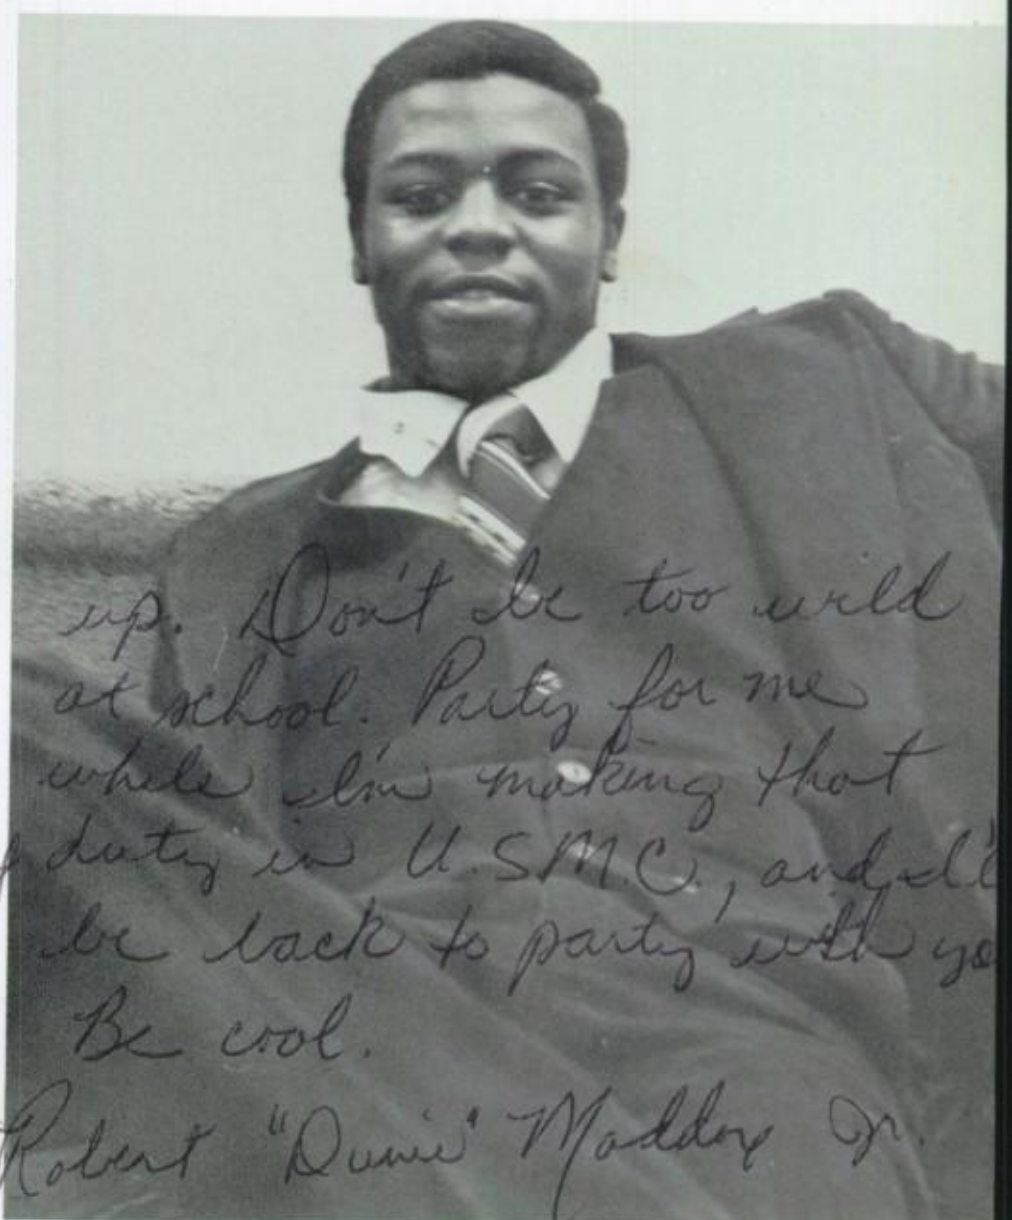 up. Don't be too wild
at school. Party for me
while I'm making that
duty in U.S.M.C., and I'll
be back to party with yo
Be cool.
Robert "Dunie" Maddox Jr.